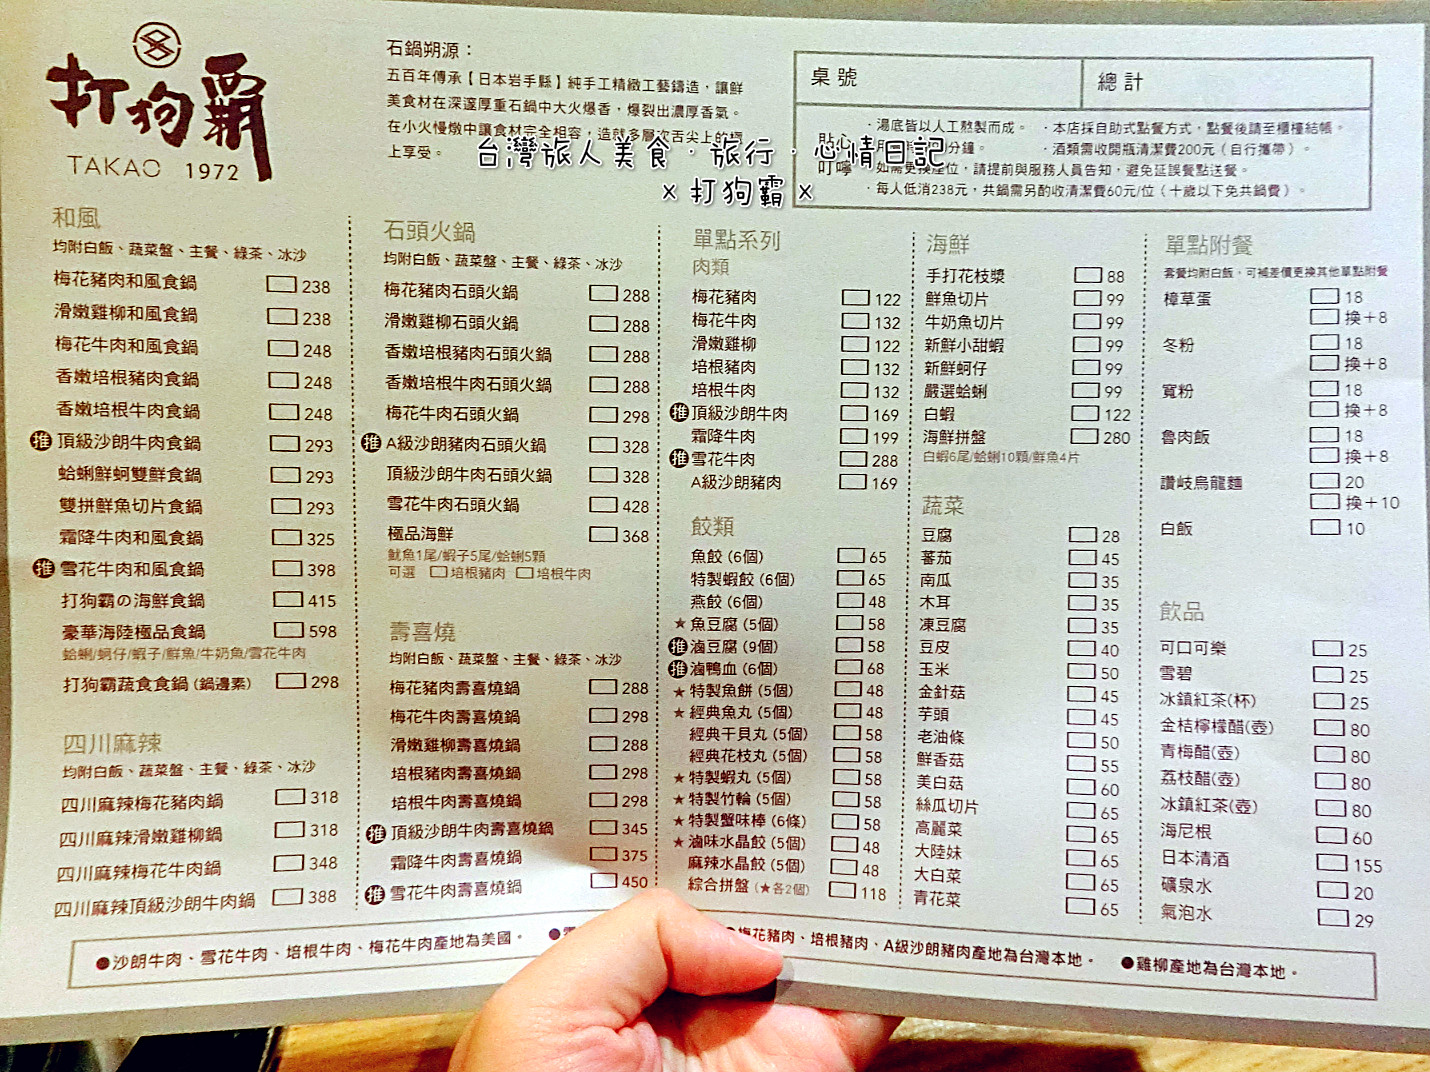 打狗霸
TAKAO 1972
石鍋朔源：
五百年傳承【日本岩手縣】純手工精緻工藝鑄造，讓鮮
美食材在深邃厚重石鍋中大火爆香，爆裂出濃厚香氣。
在小火慢燉中讓食材完全相容，造就多層次舌尖上的
上享受。
台灣旅人美食．旅行．心情日記
x 打狗霸 x
桌號
總計
貼心
叮嚀
．湯底皆以人工熬製而成。
．本店採自助式點餐方式，點餐後請至櫃檯結帳。
分鐘。
．酒類需收開瓶清潔費200元（自行攜帶）。
如需更換座位，請提前與服務人員告知，避免延誤餐點送餐。
．每人低消238元，共鍋需另酌收清潔費60元/位（十歲以下免共鍋費）。
和風
均附白飯、蔬菜盤、主餐、綠茶、冰沙
梅花豬肉和風食鍋 238
滑嫩雞柳和風食鍋 238
梅花牛肉和風食鍋 248
香嫩培根豬肉食鍋 248
香嫩培根牛肉食鍋 248
推 頂級沙朗牛肉食鍋 293
蛤蜊鮮蚵雙鮮食鍋 293
雙拼鮮魚切片食鍋 293
霜降牛肉和風食鍋 325
推 雪花牛肉和風食鍋 398
打狗霸の海鮮食鍋 415
豪華海陸極品食鍋 598
蛤蜊/蚵仔/蝦子/鮮魚/牛奶魚/雪花牛肉
打狗霸蔬食食鍋（鍋邊素） 298
四川麻辣
均附白飯、蔬菜盤、主餐、綠茶、冰沙
四川麻辣梅花豬肉鍋 318
四川麻辣滑嫩雞柳鍋 318
四川麻辣梅花牛肉鍋 348
四川麻辣頂級沙朗牛肉鍋 388
石頭火鍋
均附白飯、蔬菜盤、主餐、綠茶、冰沙
梅花豬肉石頭火鍋 288
滑嫩雞柳石頭火鍋 288
香嫩培根豬肉石頭火鍋 288
香嫩培根牛肉石頭火鍋 288
梅花牛肉石頭火鍋 298
推 A級沙朗豬肉石頭火鍋 328
頂級沙朗牛肉石頭火鍋 328
雪花牛肉石頭火鍋 428
極品海鮮 368
魷魚1尾/蝦子5尾/蛤蜊5顆
可選 培根豬肉 培根牛肉
壽喜燒
均附白飯、蔬菜盤、主餐、綠茶、冰沙
梅花豬肉壽喜燒鍋 288
梅花牛肉壽喜燒鍋 298
滑嫩雞柳壽喜燒鍋 288
培根豬肉壽喜燒鍋 298
培根牛肉壽喜燒鍋 298
推 頂級沙朗牛肉壽喜燒鍋 345
霜降牛肉壽喜燒鍋 375
推 雪花牛肉壽喜燒鍋 450
單點系列
肉類
梅花豬肉 122
梅花牛肉 132
滑嫩雞柳 122
培根豬肉 132
培根牛肉 132
推 頂級沙朗牛肉 169
霜降牛肉 199
推 雪花牛肉 288
A級沙朗豬肉 169
餃類
魚餃（6個） 65
特製蝦餃（6個） 65
燕餃（6個） 48
★ 魚豆腐（5個） 58
推 滷豆腐（9個） 58
推 滷鴨血（6個） 68
★ 特製魚餅（5個） 48
★ 經典魚丸（5個） 48
經典干貝丸（5個） 58
經典花枝丸（5個） 58
★ 特製蝦丸（5個） 58
★ 特製竹輪（5個） 58
★ 特製蟹味棒（6條） 58
★ 滷味水晶餃（5個） 48
麻辣水晶餃（5個） 48
綜合拼盤（★各2個） 118
海鮮
手打花枝漿 88
鮮魚切片 99
牛奶魚切片 99
新鮮小甜蝦 99
新鮮蚵仔 99
嚴選蛤蜊 99
白蝦 122
海鮮拼盤 280
白蝦6尾/蛤蜊10顆/鮮魚4片
蔬菜
豆腐 28
蕃茄 45
南瓜 35
木耳 35
凍豆腐 35
豆皮 40
玉米 50
金針菇 45
芋頭 45
老油條 50
鮮香菇 55
美白菇 60
絲瓜切片 65
高麗菜 65
大陸妹 65
大白菜 65
青花菜 65
單點附餐
套餐均附白飯，可補差價更換其他單點附餐
樟草蛋 18
換＋8
冬粉 18
換＋8
寬粉 18
換＋8
魯肉飯 18
換＋8
讚岐烏龍麵 20
換＋10
白飯 10
飲品
可口可樂 25
雪碧 25
冰鎮紅茶(杯) 25
金桔檸檬醋(壺) 80
青梅醋(壺) 80
荔枝醋(壺) 80
冰鎮紅茶(壺) 80
海尼根 60
日本清酒 155
礦泉水 20
氣泡水 29
●沙朗牛肉、雪花牛肉、培根牛肉、梅花牛肉產地為美國。
梅花豬肉、培根豬肉、A級沙朗豬肉產地為台灣本地。
●雞柳產地為台灣本地。